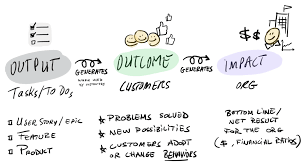 $$
OUTPUT
GENERATES
OUTCOME
GENERATES
IMPACT
TASKS/TO DOS
CUSTOMERS
ORG
USER STORY / EPIC
FEATURE
PRODUCT
PROBLEMS SOLVED
NEW POSSIBILITIES
CUSTOMERS ADOPT
OR CHANGE BEHAVIORS
BOTTOM LINE/
NET RESULT
FOR THE ORG
($, FINANCIAL RATIOS)